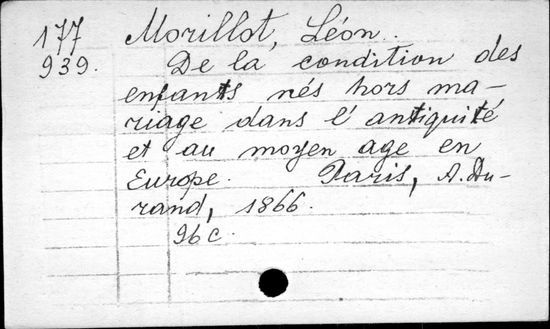 177 Morillot, Léon.
939. De la condition des
enfants nés hors ma-
riage dans l'antiquité
et au moyen age en
Europe. Paris, A. Du-
rand, 1866.
96 c.